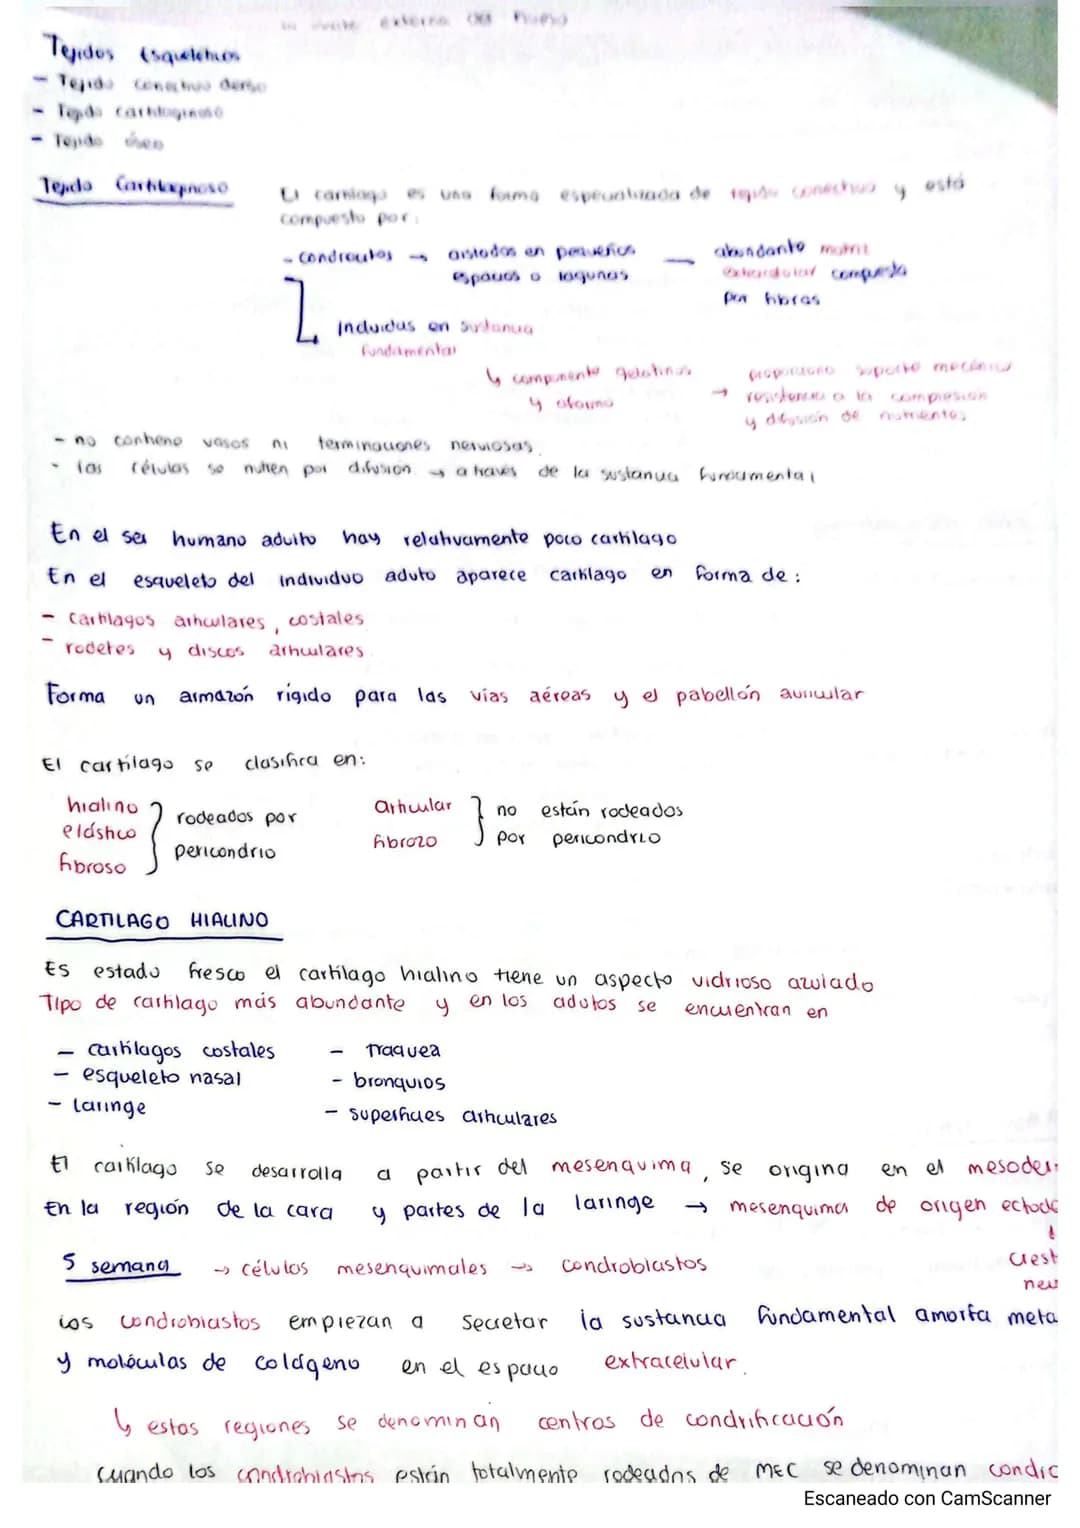 externa del hueso
Tejidos Esqueléticos
- Tejido conectivo denso
- Tejido cartilaginoso
- Tejido óseo
Tejido Cartilaginoso
El cartilago es una forma especializada de tejido conectivo y está
compuesto por:
- condrocitos → aislados en pequeños — abundante matriz
espacios o lagunas extracelular compuesta
por fibras
Incluidas en sustancia
fundamental
↳ componente gelatinoso → proporciona soporte mecánico
y aformo resistencia a la compresion
y difusión de nutrientes
- no contiene vasos ni terminaciones nerviosas
- las células se nutren por difusión → a traves de la sustancia fundamental
En el ser humano adulto hay relativamente poco cartilago
En el esqueleto del individuo aduto aparece cartilago en forma de:
- cartilagos articulares, costales
- rodetes y discos articulares
Forma un armazón rígido para las vías aéreas y el pabellón auricular
El cartílago se clasifica en:
hialino
elástico
fibroso
rodeados por
pericondrio
Articular
fibrozo
no están rodeados
por pericondrio
CARTILAGO HIALINO
Es estado fresco el cartílago hialino tiene un aspecto vidrioso azulado
Tipo de cartilago más abundante y en los adultos se encuentran en
- cartilagos costales
- esqueleto nasal
- laringe
- Traquea
- bronquios
- superficies articulares
El cartilago se desarrolla a partir del mesenquima, se origina en el mesoder
En la región de la cara y partes de la laringe → mesenquima de origen ectode
↓
Crest
neu
5 semana → células mesenquimales → condroblastos
Los condroblastos empiezan a secretar la sustancia fundamental amorfa meta
y moléculas de colágeno en el espacio extracelular.
↳ estas regiones se denominan centros de condrificación
Cuando los condroblastos están totalmente rodeados de MEC se denominan condro
Escaneado con CamScanner